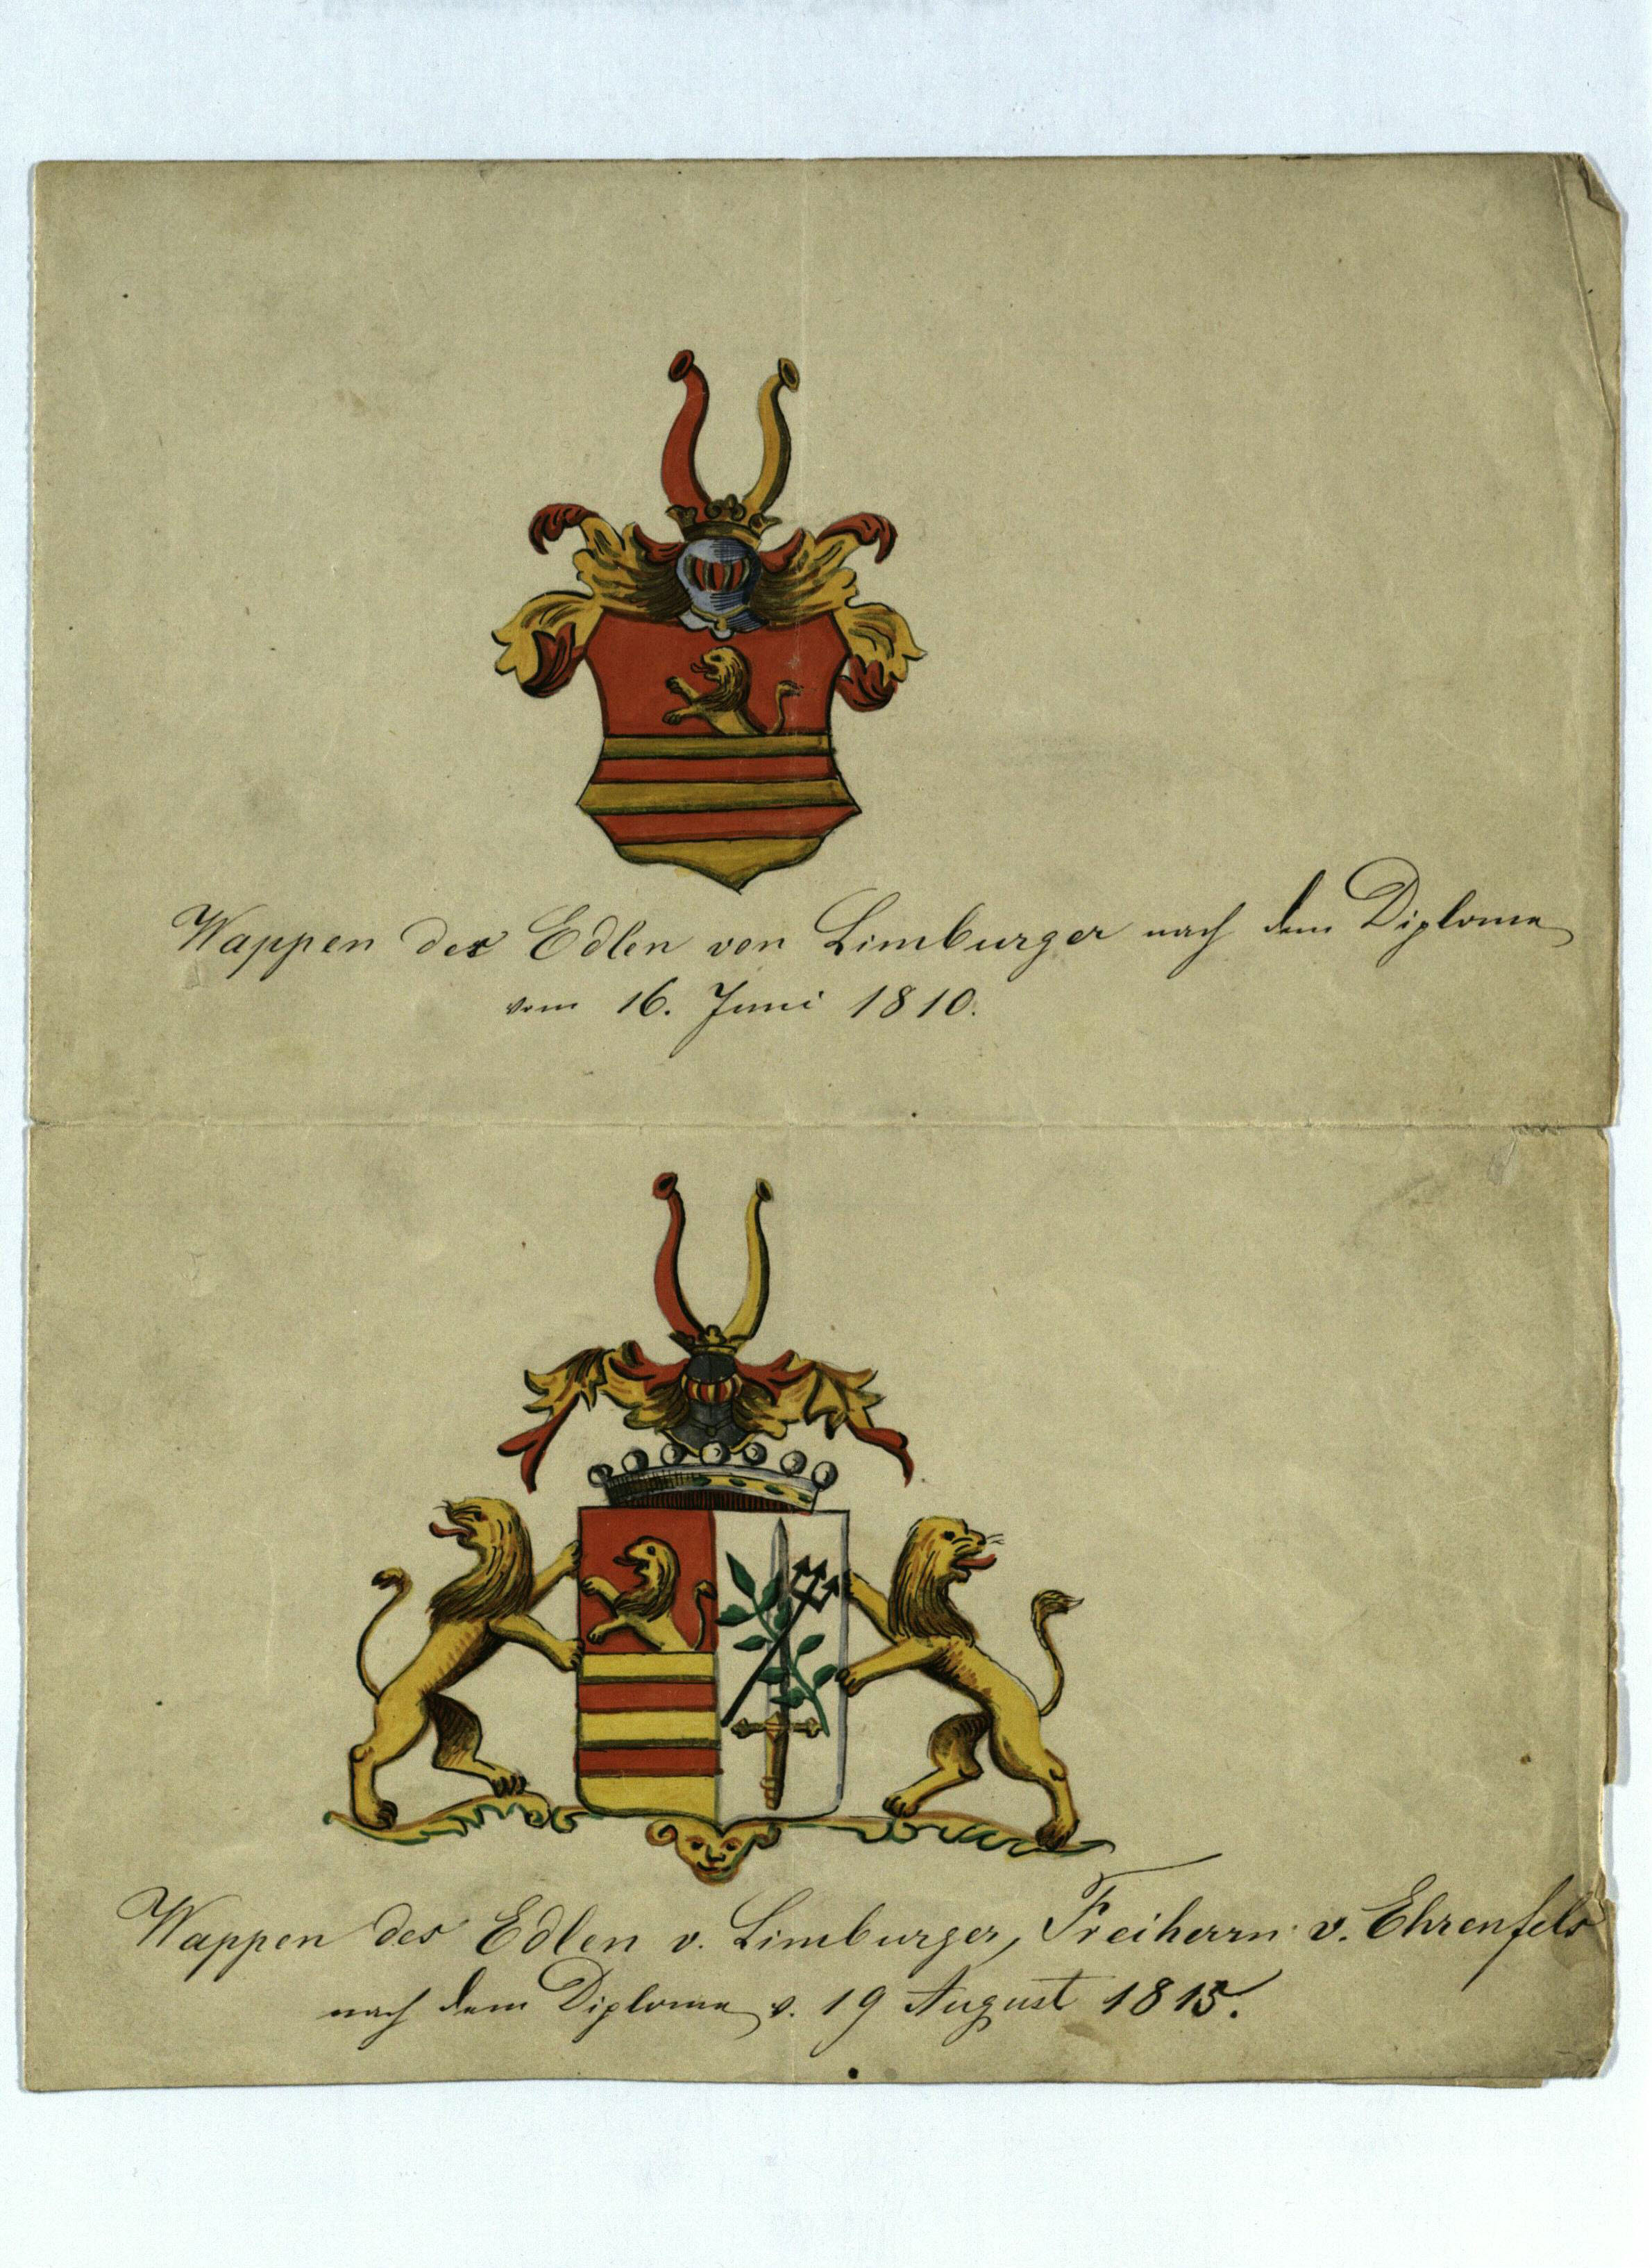 Wappen des Edlen von Limburger nach dem Diplome
vom 16. Juni 1810.
Wappen des Edlen v. Limburger, Freiherrn v. Ehrenfels
nach dem Diplome v. 19 August 1815.